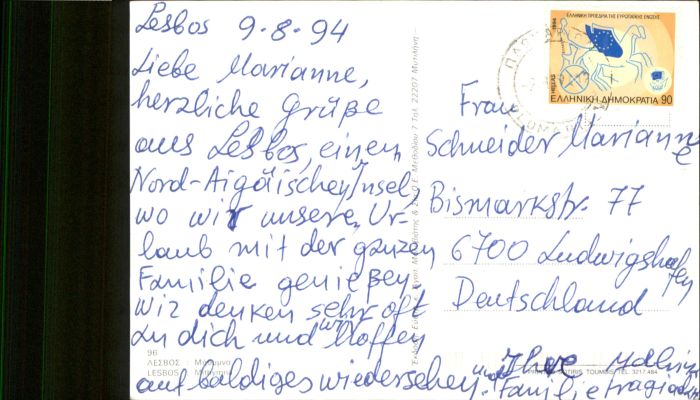 Lesbos 9.8.94
Liebe Marianne,
herzliche Grüße
aus Lesbos, einem
Nord-Aigäischen Insel,
wo wir unsere Ur-
laub mit der ganzen
Familie genießen,
Wir denken sehr oft
zu dich und wir Hoffen
auf baldiges wiedersehen.
Ihre
und Familie
ΕΛΛΗΝΙΚΗ ΠΡΟΕΔΡΙΑ ΤΗΣ ΕΥΡΩΠΑΪΚΗΣ ΕΝΩΣΗΣ
ΕΛΛΗΝΙΚΗ ΔΗΜΟΚΡΑΤΙΑ 90
Frau
Schneider Marianne
Bismarkstr. 77
6700 Ludwigshafen
Deutschland
96
ΛΕΣΒΟΣ : Μήθυμνα
LESBOS : Methymna
TOUMBIS TEL. 3217.484
Μεθοδίου 7 Τηλ. 22207 Μυτιλήνη